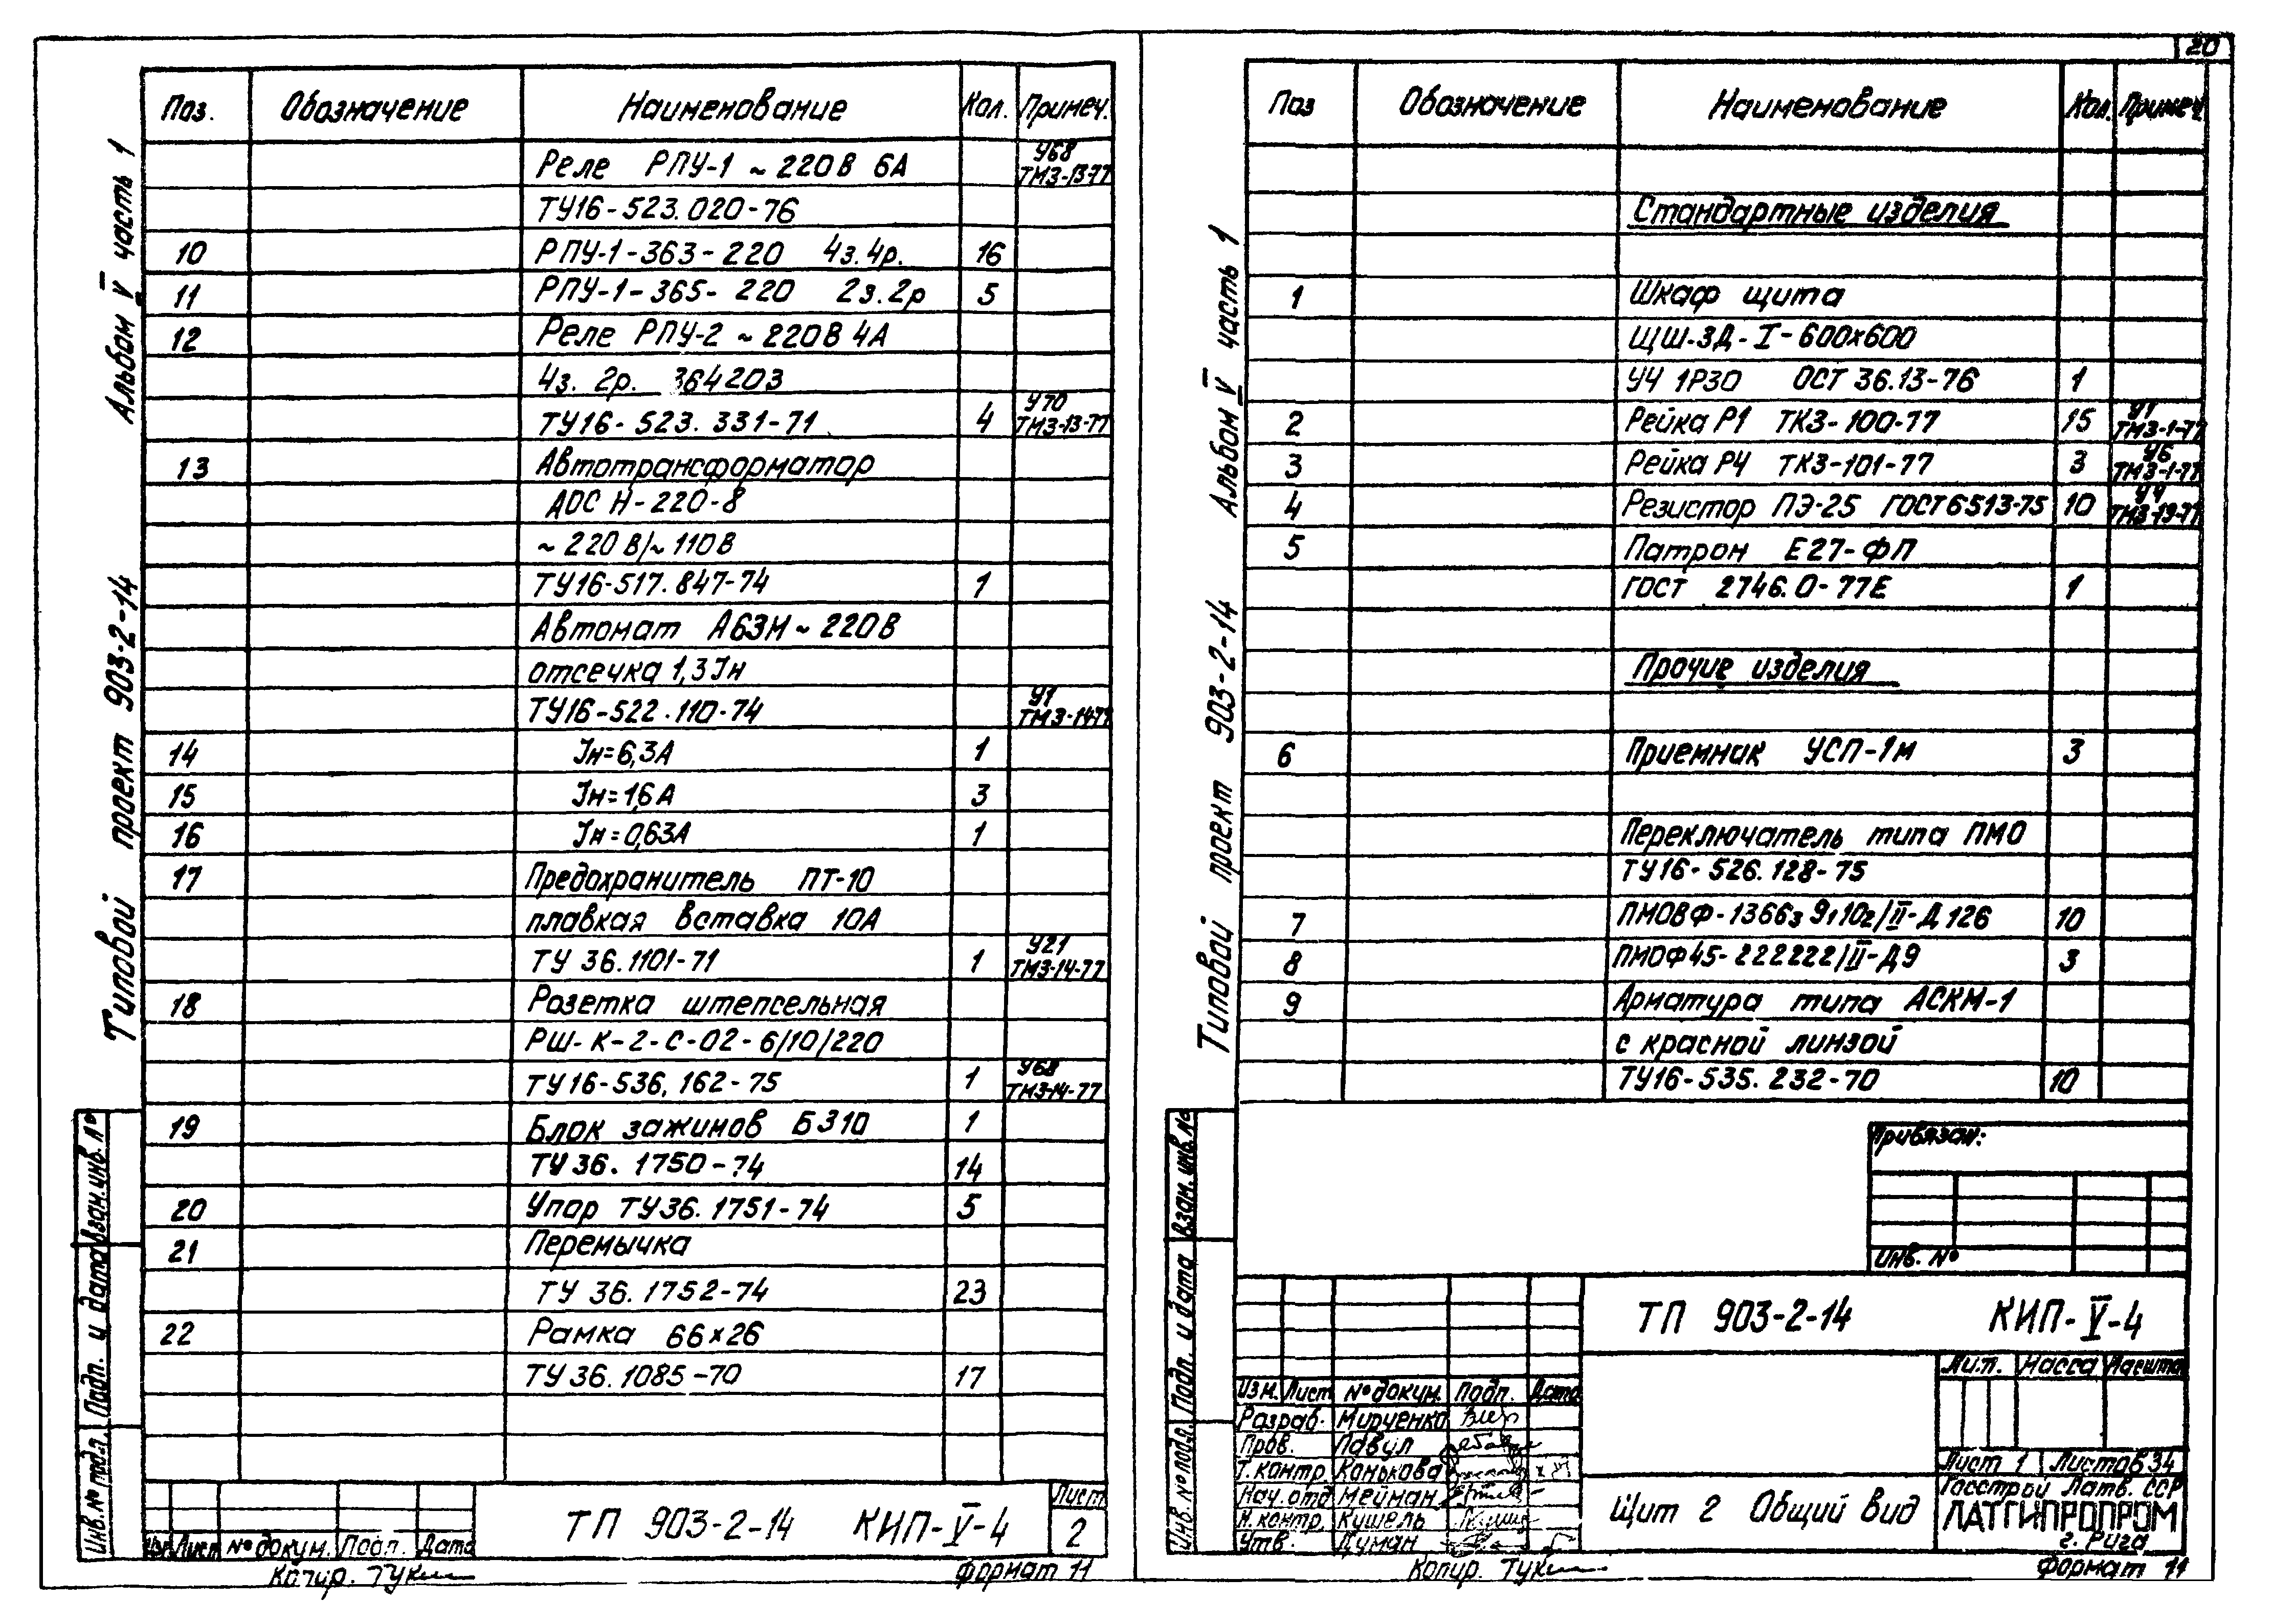 20
Типовой проект 903-2-14 Альбом V часть 1
Поз. Обозначение Наименование Кол. Примеч.
Реле РПУ-1 ~ 220В 6А У68 ТМ3-13-77
ТУ16-523.020-76
10 РПУ-1-363-220 4з.4р. 16
11 РПУ-1-365-220 2з.2р 5
12 Реле РПУ-2 ~ 220В 4А
4з. 2р. 364203
ТУ16-523.331-71 4 У70 ТМ3-13-77
13 Автотрансформатор
АОСН-220-8
~220В/~110В
ТУ16-517.847-74 1
Автомат А63М ~ 220В
отсечка 1,3 Iн
ТУ16-522.110-74 У1 ТМ3-14-77
14 Iн=6,3А 1
15 Iн=1,6А 3
16 Iн=0,63А 1
17 Предохранитель ПТ-10
плавкая вставка 10А
ТУ 36.1101-71 1 У21 ТМ3-14-77
18 Розетка штепсельная
РШ-К-2-С-02-6/10/220
ТУ16-536,162-75 1 У68 ТМ3-14-77
19 Блок зажимов БЗ10 1
ТУ36.1750-74 14
20 Упор ТУ36.1751-74 5
21 Перемычка
ТУ 36.1752-74 23
22 Рамка 66х26
ТУ 36.1085-70 17
Инв. № подл. Подп. и дата Взам. инв. №
Изм. Лист № докум. Подп. Дата
ТП 903-2-14 КИП-V-4
Лист
2
Копир.
Формат 11
Типовой проект 903-2-14 Альбом V часть 1
Поз Обозначение Наименование Кол. Примеч.
Стандартные изделия
1 Шкаф щита
ЩШ-3Д-I-600х600
У4 1Р30 ОСТ 36.13-76 1
2 Рейка Р1 ТК3-100-77 15 У1 ТМ3-1-77
3 Рейка Р4 ТК3-101-77 3 У6 ТМ3-1-77
4 Резистор ПЭ-25 ГОСТ6513-75 10 У4 ТМ3-19-77
5 Патрон Е27-ФП
ГОСТ 2746.0-77Е 1
Прочие изделия
6 Приемник УСП-1м 3
Переключатель типа ПМО
ТУ16-526.128-75
7 ПМОВФ-1366з9110г/II-Д126 10
8 ПМОФ45-222222/II-Д9 3
9 Арматура типа АСКМ-1
с красной линзой
ТУ16-535.232-70 10
Привязан:
Инв. №
Инв. № подл. Подп. и дата Взам. инв. №
ТП 903-2-14 КИП-V-4
Изм. Лист № докум. Подп. Дата
Разраб.
Пров. Павул
Т. контр. Конькова
Нач. отд Мейман
Н. контр. Кушель
Утв. Думан
Щит 2 Общий вид
Лит. Масса Масштаб
Лист 1 Листов 34
Госстрой Латв. ССР
ЛАТГИПРОПРОМ
г. Рига
Копир.
Формат 11